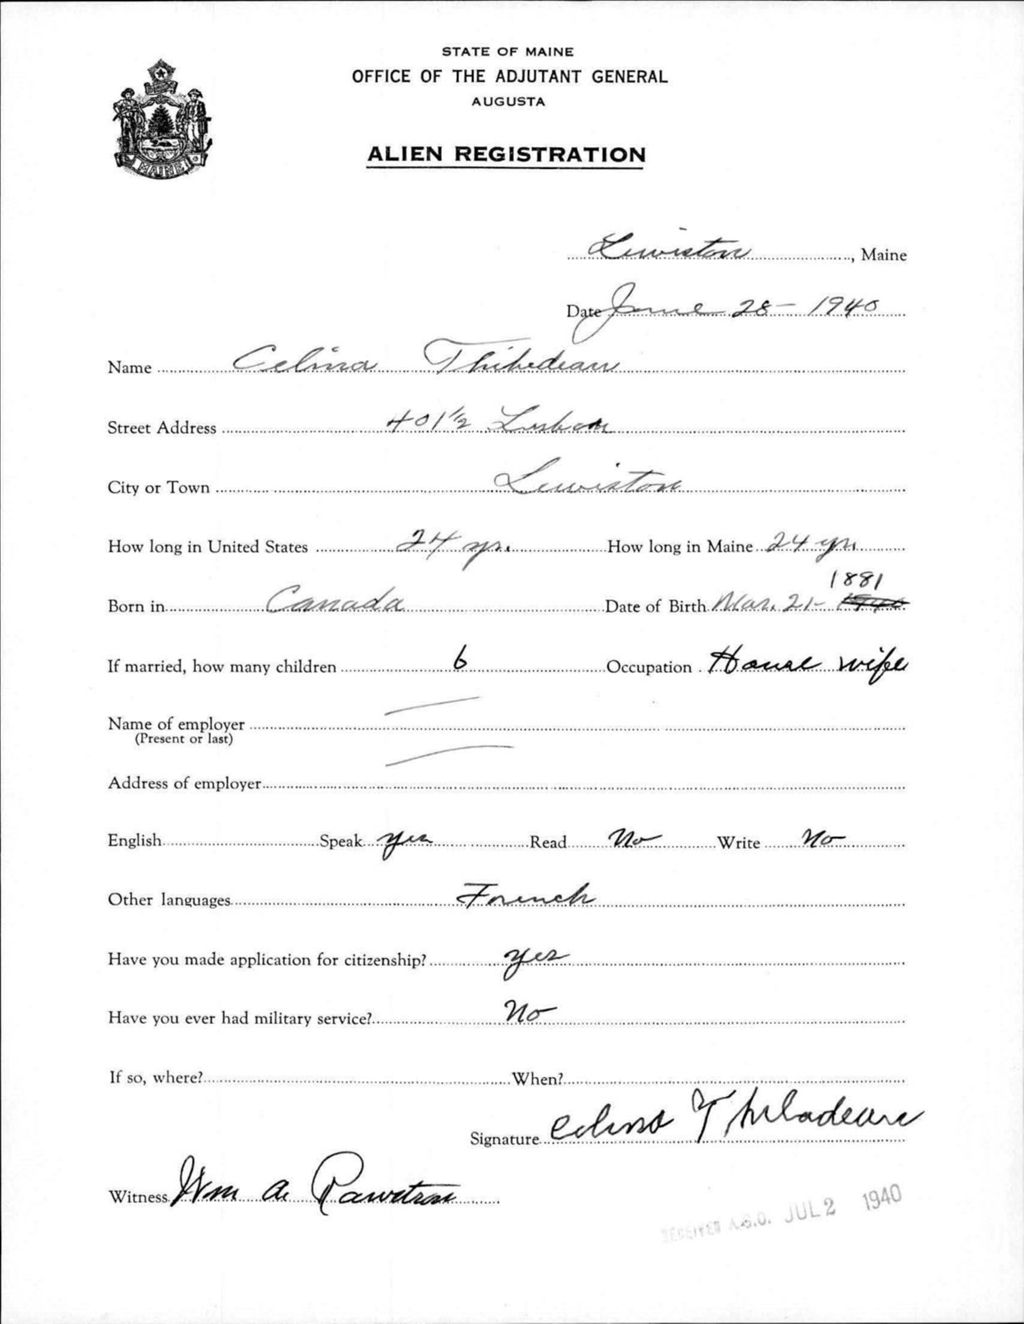 STATE OF MAINE
OFFICE OF THE ADJUTANT GENERAL
AUGUSTA
ALIEN REGISTRATION
MAINE
Lewiston, Maine
Date June 28 - 1940
Name Celina Thibedeau
Street Address 401 1/2 Lisbon
City or Town Lewiston
How long in United States 24 yr. How long in Maine 24 yr.
1881
Born in Canada Date of Birth Mar. 21- 1940
If married, how many children 6 Occupation House wife
Name of employer
(Present or last)
Address of employer
English Speak yes Read No Write No
Other languages French
Have you made application for citizenship? yes
Have you ever had military service? No
If so, where? When?
Signature Celina Thibadeau
Witness Wm A.
RECEIVED A.G.O. JUL 2 1940